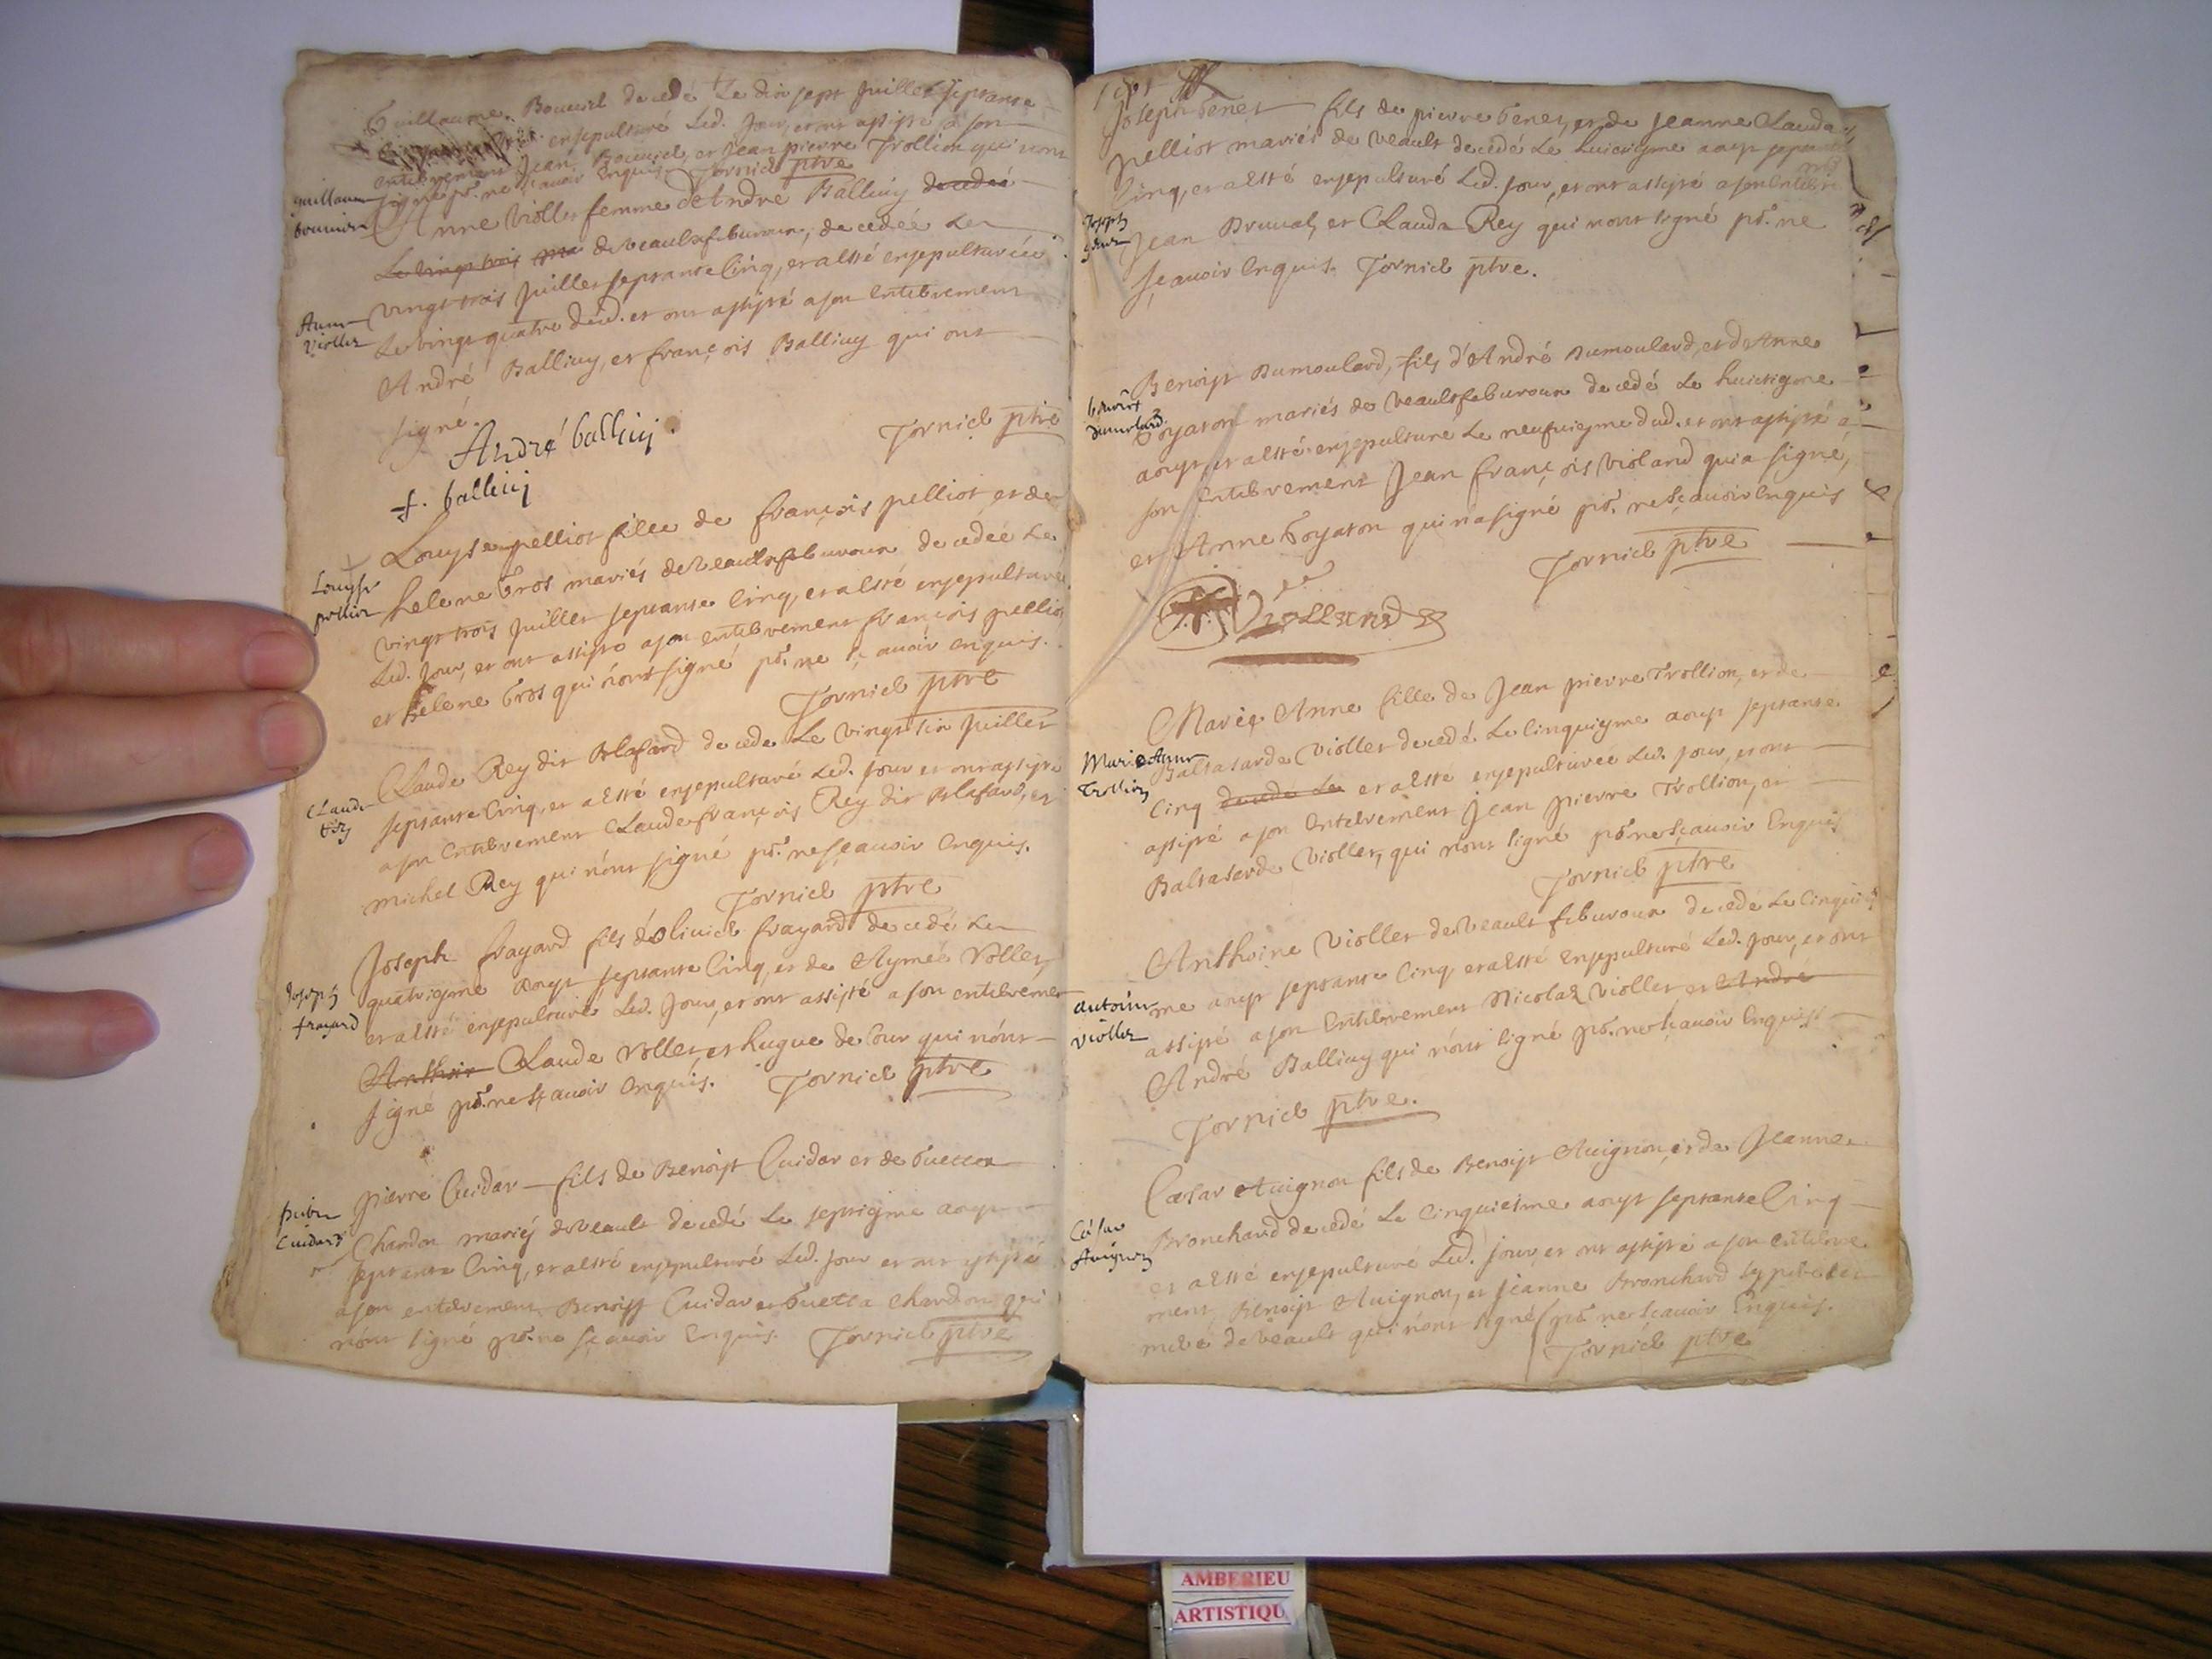 Guillaume Bouvied decedé Le dix sept Juillet septante
ensepulturé Led. Jour, et ont assisté à son
entèrrement Jean Bouvied, et Jean pierre Trollion qui n'ont
signé po.r ne sçavoir enquis Jornied ptre
guillaume
bouvier
Anne Viollet femme de André Balliuy decedeé
Le vingt trois de veaulxfebvroux, decedeé Le
vingt trois Juillet septante Cinq, et a esté ensepulturéé
Le vingt quatre dud. et ont assisté a son enterrement
André Balliuy, et françois Balliuy qui ont
signé.
Anne
Viollet
André balliuj
f. balliuj
Jornied ptre
Louyse pelliot fille de françois pelliot, et de
helene Gros mariés de veaulxfebvroux decedeé Le
vingt trois Juillet septante Cinq, et a esté ensepulturéé
Led. Jour, et ont assisté a son enterrement françois pelliot
et helene Gros qui n'ont signé po.r ne sçavoir enquis.
Jornied ptre
Louyse
pelliot
Claude Rey dit Blafard decede Le vingt six Juillet
septante Cinq, et a esté ensepulturé Led. Jour et ont assisté
a son enterrement Claude françois Rey dit Blafard, et
michel Rey qui n'ont signé po.r ne sçavoir enquis.
Jornied ptre
Claude
Rey
Joseph frayard fils d'olivied frayard decedé Le
quatriesme aoust septante Cinq, et de Aymeé Vollet,
et a esté ensepulturé Led. Jour, et ont assisté a son enterrement
Anthoin Claude Vollet, et hugue de Cour qui n'ont
signé po.r ne sçavoir enquis. Jornied ptre
Joseph
frayard
pierre Cuidar fils de Benoist Cuidar et de Guetta
Chardon mariés de veault decedé Le septiesme aoust
septante Cinq, et a esté ensepulturé Led. Jour et ont assisté
a son enterrement Benoist Cuidar et Guetta chardon qui
n'ont signé po.r ne sçavoir Enquis. Jornied ptre
Cuidard
Joseph Genet fils de pierre Genet, et de Jeanne Claude
pelliot mariés de veault decedé Le huictiesme aoust septante
Cinq, et a esté ensepulturé Led. Jour, et ont assisté a son enterre
Jean Bruval, et Clauda Rey qui n'ont signé po.r ne
sçavoir enquis. Jornied ptre.
Joseph
genet
Benoist Dumoulard, fils d'André Dumoulard, et d'Anne
Goyaton mariés de veaultfebvroux decedé Le huictiesme
aoust, et a esté ensepulturé Le neufviesme dud. et ont assisté a
son enterrement Jean françois Violand qui a signé,
et Anne Goyaton qui n'a signé po.r ne sçavoir enquis
Jornied ptre
benoist
dumolard
Violland
Marie Anne fille de Jean pierre Trollion, et de
Baltasarde Viollet decedé Le Cinquiesme aoust septante
Cinq decede Le et a esté ensepulturéé Led. Jour, et ont
assisté a son enterrement Jean pierre Trollion, et
Baltasarde Viollet, qui n'ont signé po.r ne sçavoir Enquis
Jornied ptre
Marie Anne
Trollion
Anthoine Viollet de veault febvroux decedé Le Cinquies
me aoust septante Cinq, et a esté Ensepulturé Led. Jour, et ont
assisté a son enterrement Nicolas Viollet et André
André Balliuy qui n'ont signé po.r ne sçavoir Enquis
Jornied ptre.
antoine
viollet
Caesar Avignon fils de Benoist Avignon, et de Jeanne
Bronchard decedé Le Cinquiesme aoust septante Cinq
et a esté ensepulturé Led. Jour, et ont assisté a son enterre
ment, Benoist Avignon, et Jeanne Bronchard
mere de veault qui n'ont signé po.r ne sçavoir Enquis.
Jornied ptre
César
Avignon
AMBERIEU
ARTISTIQU